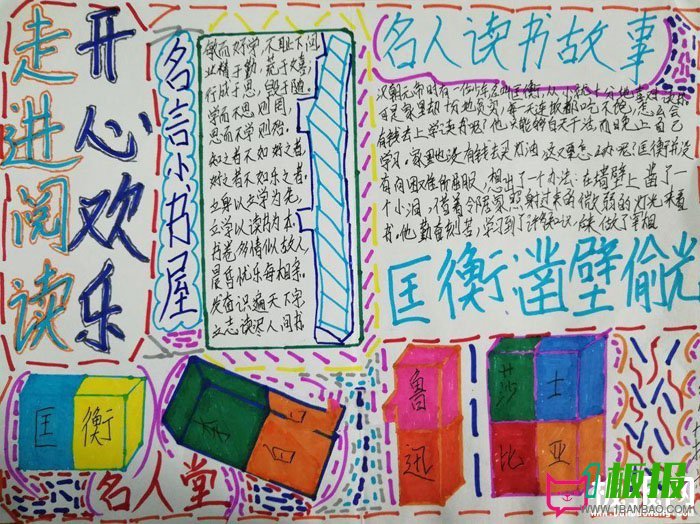 走进阅读
开心欢乐
名言小书屋
敏而好学,不耻下问
业精于勤,荒于嬉,
行成于思,毁于随。
学而不思则罔,
思而不学则殆。
知之者不如好之者,
好之者不如乐之者。
立身以立学为先,
立学以读书为本。
书卷多情似故人,
晨昏忧乐每相亲。
发奋识遍天下字
立志读尽人间书
名人读书故事
汉朝元帝时有一位
匡衡,从小就十分
可是家里却十分地贫穷,每一天连饭都吃不饱,怎么会
有钱去上学读书呢?他只能够白天干活,而晚上自己
学习,家里也没有钱去买灯油,这可怎么办呢?匡衡并没
有向困难所屈服,想出了一个办法:在墙壁上凿了一
个小洞,借着令居家照射过来的微弱的灯光来看
书。他勤奋刻苦,学习到了许多知识,
做了宰相
匡衡凿壁偷光
匡衡
李白
鲁迅
莎士比亚
名人堂
1板报
WWW.1BANBAO.COM